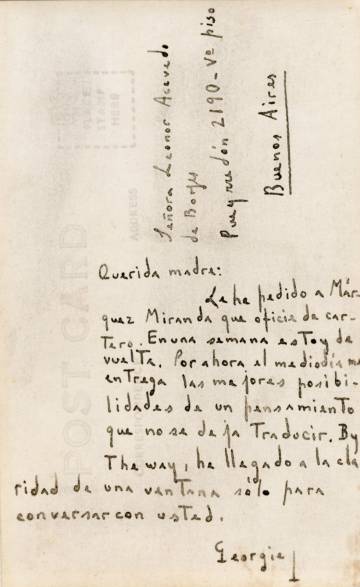 Señora Leonor Acevedo
de Borges
Pueyrredón 2190-Vº piso
Buenos Aires
Querida madre:
Le he pedido a Már-
quez Miranda que oficie de car-
tero. En una semana estoy de
vuelta. Por ahora el mediodía me
entrega las mejores posibi-
lidades de un pensamiento
que no se deja traducir. By
The way, he llegado a la cla
ridad de una ventana sólo para
conversar con usted.
Georgie
POST CARD
PLACE
STAMP
HERE
ADDRESS